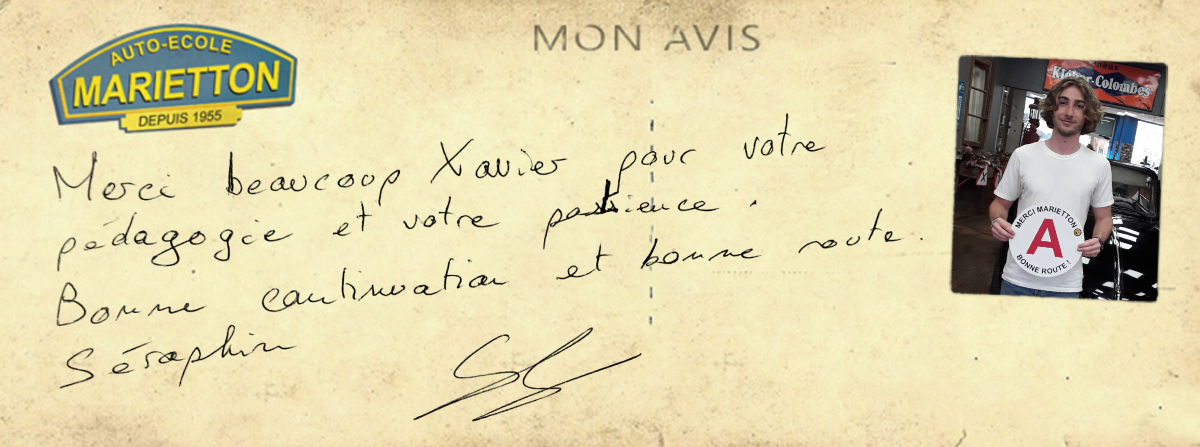 MON AVIS
AUTO-ECOLE
MARIETTON
DEPUIS 1955
Merci beaucoup Xavier pour votre
pédagogie et votre patience.
Bonne continuation et bonne route.
Séraphin
Kléber-Colombes
MERCI MARIETTON
A
BONNE ROUTE !